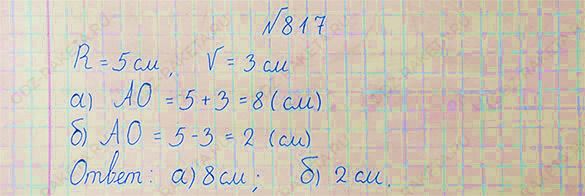 №817
R = 5 см, V = 3 см
а) AO = 5 + 3 = 8 (см)
б) AO = 5 - 3 = 2 (см)
Ответ: а) 8 см; б) 2 см.